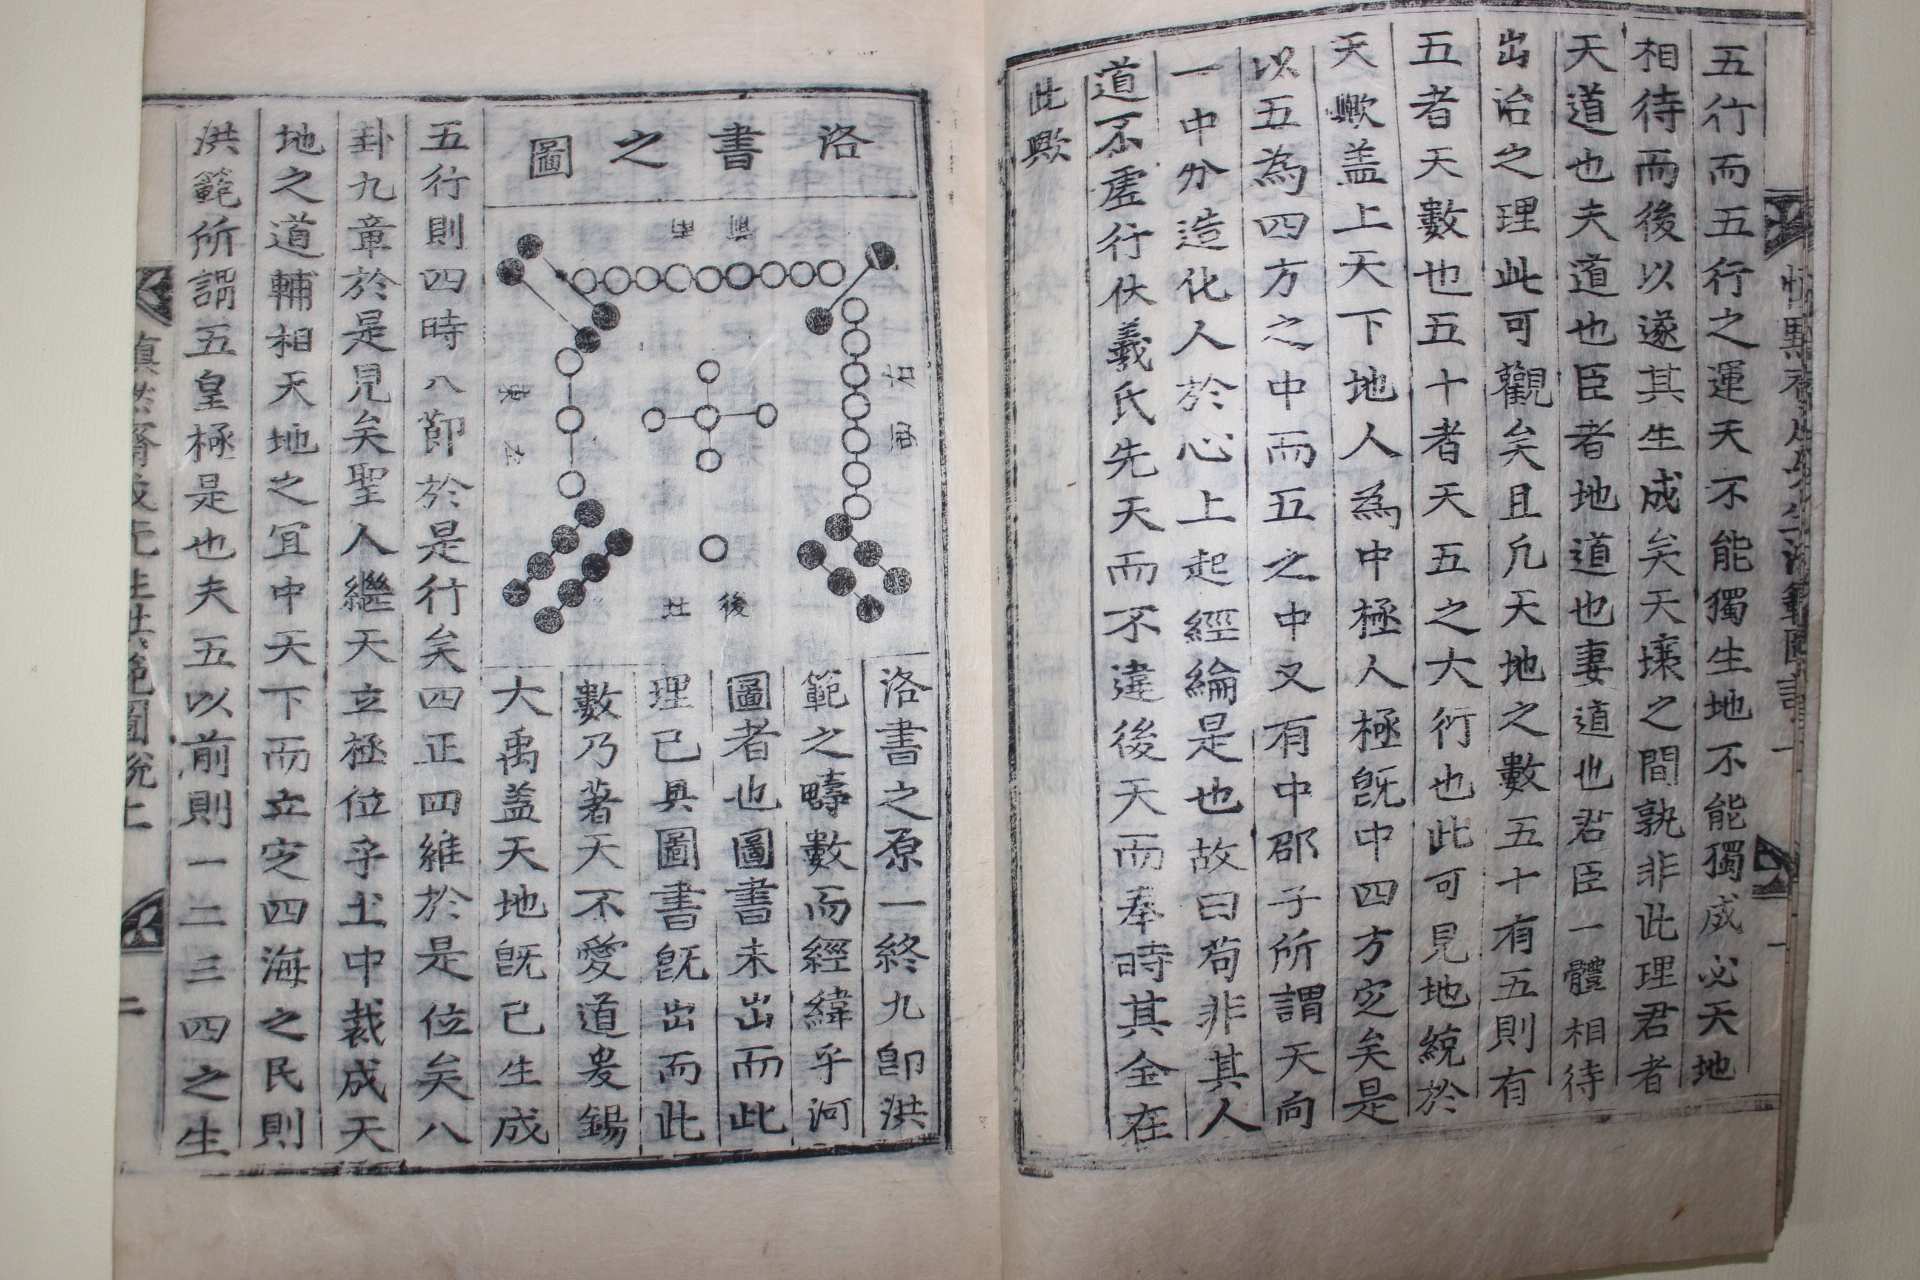 五行而五行之運天不能獨生地不能獨成必天地
相待而後以遂其生成矣天壤之間孰非此理君者
天道也夫道也臣者地道也妻道也君臣一體相待
出治之理此可觀矣且凡天地之數五十有五則有
五者天數也五十者天五之大衍也此可見地統於
天歟盖上天下地人為中極人極旣中四方定矣是
以五為四方之中而五之中又有中邵子所謂天向
一中分造化人於心上起經綸是也故曰苟非其人
道不虛行伏羲氏先天而不違後天而奉時其全在
此歟
洛書之圖
洛書之原一終九卽洪
範之疇數而經緯乎河
圖者也圖書未出而此
理已具圖書旣出而此
數乃著天不愛道爰錫
大禹盖天地旣已生成
五行則四時八節於是行矣四正四維於是位矣八
卦九章於是見矣聖人繼天立極位乎土中裁成天
地之道輔相天地之宜中天下而立定四海之民則
洪範所謂五皇極是也夫五以前則一二三四之生
二